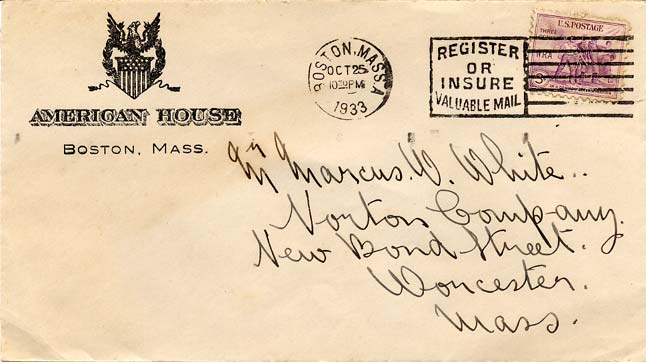 AMERICAN HOUSE
BOSTON, MASS.
BOSTON, MASS.
OCT 25
1933
REGISTER
OR
INSURE
VALUABLE MAIL
U.S. POSTAGE
THREE
NRA
3
Mr Marcus. W. White..
Norton Company.
New Bond Street.
Worcester.
Mass.